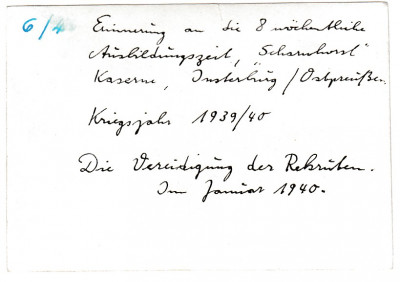 6/4
Erinnerung an die 8 wöchentliche
Ausbildungszeit, "Scharnhorst"
Kaserne, Insterburg/Ostpreußen.
Kriegsjahr 1939/40
Die Vereidigung der Rekruten.
Im Januar 1940.